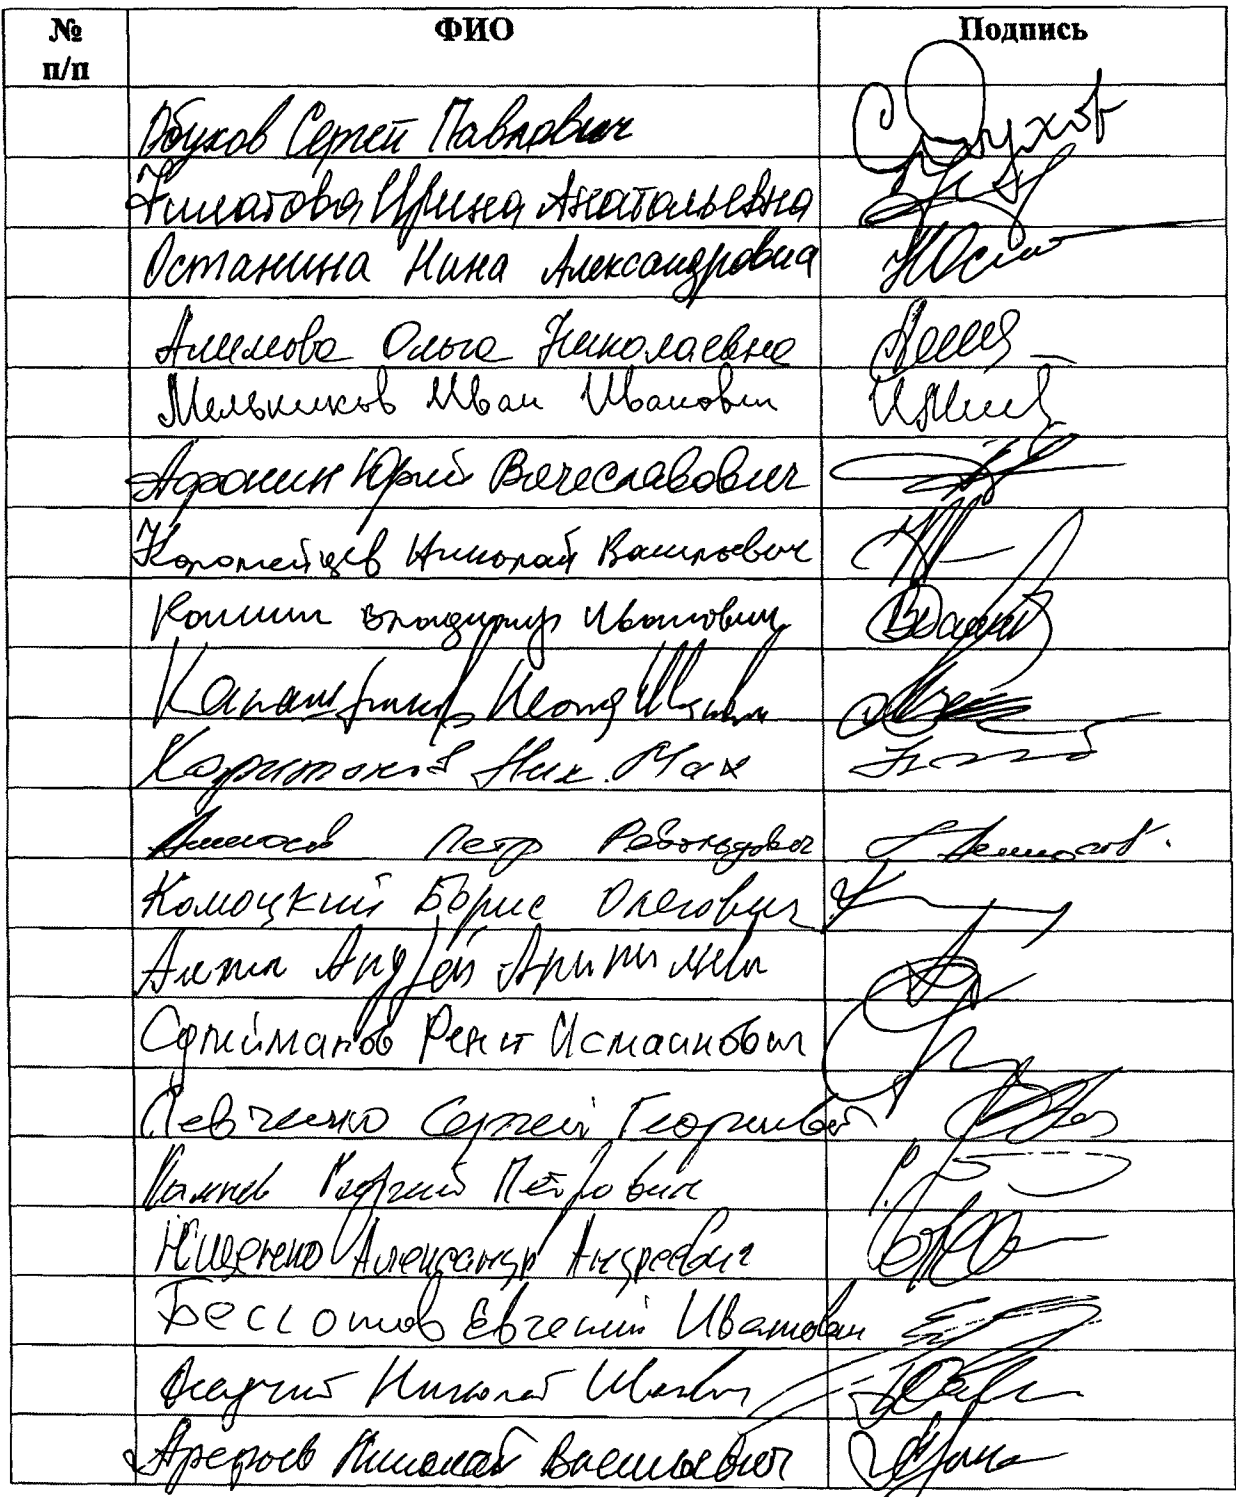 № п/п ФИО Подпись
Обухов Сергей Павлович
Филатова Ирина Анатольевна
Останина Нина Александровна
Алимова Ольга Николаевна
Мельников Иван Иванович
Афонин Юрий Вячеславович
Коломейцев Николай Васильевич
Кашин Владимир Иванович
Калашников Леонид Иванович
Харитонов Ник. Мах
Аммосов Петр Револьдович
Комоцкий Борис Олегович
Андрей
Сулейманов Ренат Исмаилович
Левченко Сергей Георгиевич
Камнев Георгий Петрович
Ющенко Александр Андреевич
Бессонов Евгений Иванович
Осадчий Николай Иванович
Арефьев Николай Васильевич